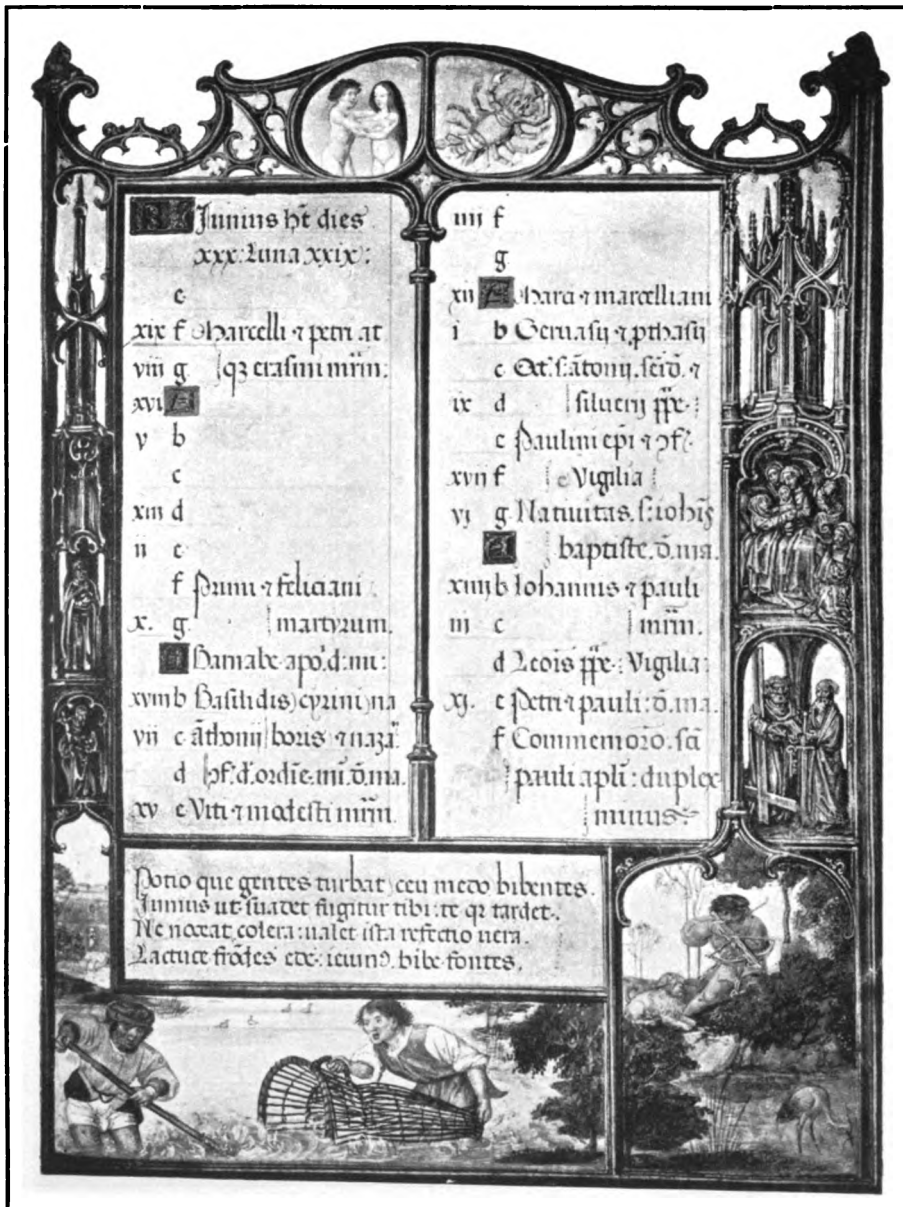 KL Junius ht dies
xxx: Luna xxix:
e
xix f Marcelli ⁊ petri at
viii g qz erasmi mrm:
xvi A
v b
c
xiii d
ii e
f Primi ⁊ feliciani
x. g martyrum.
A Barnabe apo: d: mi:
xviii b Basilidis cyrini na
vii c athonij boris ⁊ naza
d d ordie mi d ma.
xv e Viti ⁊ modesti mrm.
iiii f
g
xii A Marci ⁊ marcelliani
i b Geruasij ⁊ pthasij
c Oct. s: atonij. ⁊
ix d siluerij ppe.
e Paulini epi ⁊ ɔf.
xvii f Vigilia
vi g Natiuitas. s: iohis
A baptiste. d. ma.
xiiii b Iohannis ⁊ pauli
iii c mrm.
d Leois ppe: Vigilia:
xj. e Petri ⁊ pauli: d. ma.
f Commemoro. sci
pauli apli: duplex
minus
Potio que gentes turbat ceu medo bibentes.
Junius ut suadet fugitur tibi: te qz tardet.
Ne noceat colera: ualet ista refectio uera.
Lactuce frodes ede: ieiunꝰ. bibe fontes.